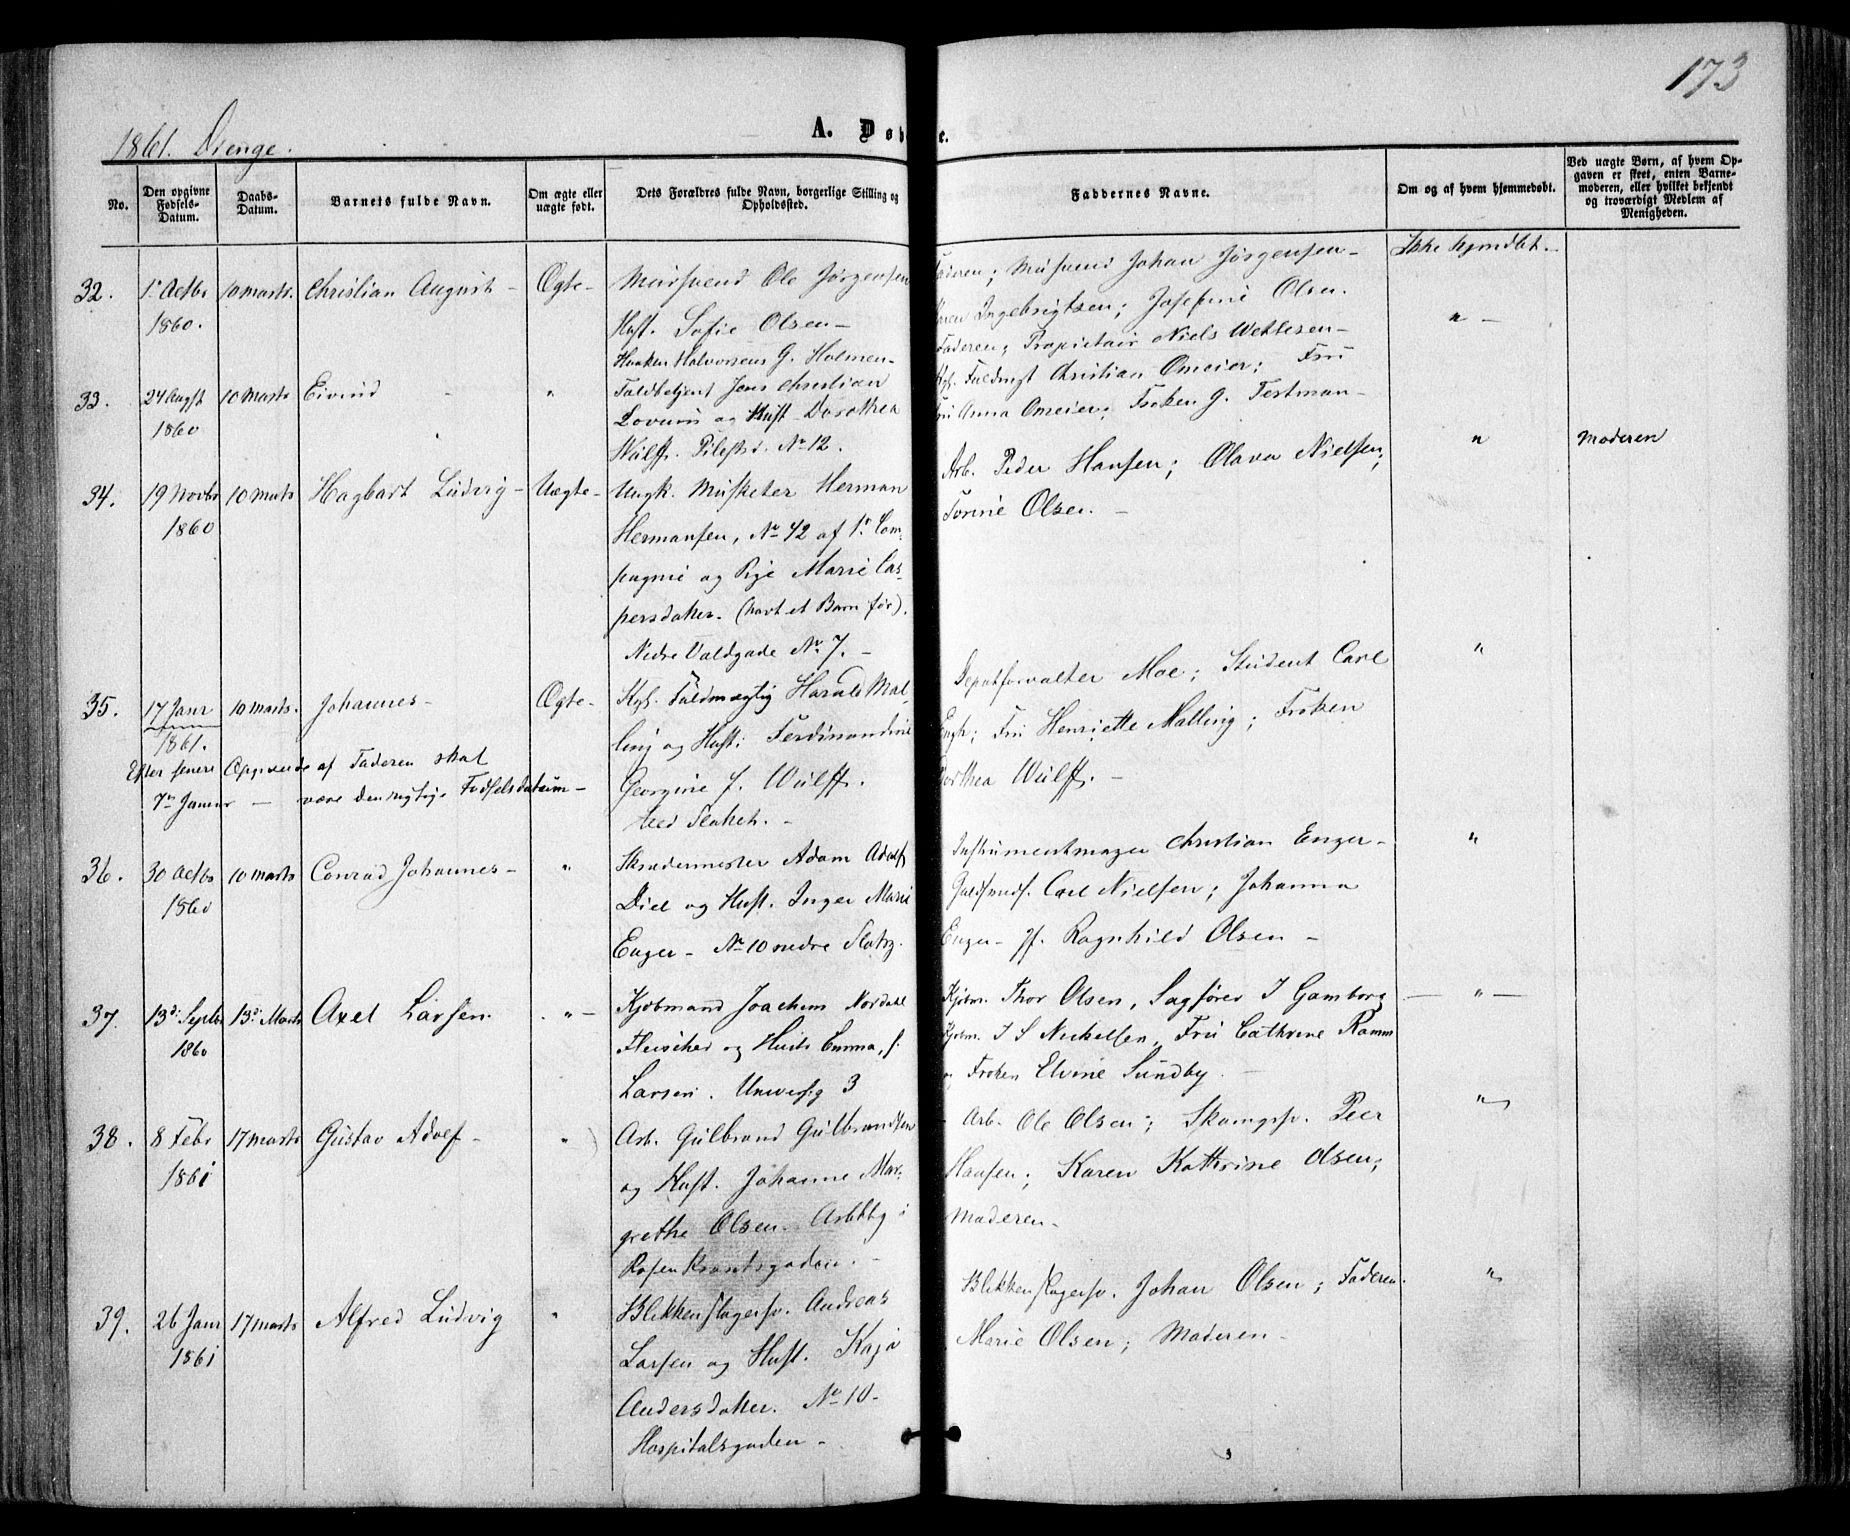 173
1861. Drenge.
A. Døb e.
No.
Den opgivne Fødsels-Datum.
Daabs-Datum.
Barnets fulde Navn.
Om ægte eller uægte født.
Dets Forældres fulde Navn, borgerlige Stilling og Opholdssted.
Faddernes Navne.
Om og af hvem hjemmedøbt.
Ved uægte Børn, af hvem Opgaven er skeet, enten Barnemoderen, eller hvilket bekjendt og troværdigt Medlem af Menigheden.
32. 1r Octbr 10 Marts. Christian August - Ægte- Muursvend Ole Jørgensen
1860. Hust. Sofie Olsen-
Haaken Halvorsens G. Holmen-
Faderen; Mursvend Johan Jørgensen-
Ingebrigtsen; Josefine Olsen.
Ikke hjemdbt. -
33. 24 Augst 10 Marts Eivind - "
1860
Toldbetjent Jens Christian
Lovum og Hust Dorothea
Wulff. Pilestr. No 12.
Faderen; Proprietair Niels Wettesen-
Christian Omeier; Fru
Anna Omeier; Frøken G. Testman-
" -
34. 19 Novbr 10 Marts Hagbart Ludvig- Uægte-
1860
Ungk. Musketer Herman
Hermansen, No 42 af 1r. Com-
pagnie og Pige Marie Cas-
persdatter. (havt et Barn før).
Nedre Voldgade No. 7. -
Arb. Peder Hansen; Olava Nielsen;
Torine Olsen. -
" Moderen
35. 17 Janr 10 Marts. Johannes- Ægte-
1861.
Efter senere Opgivende af Faderen skal
7de Januar - være den rigtige Fødselsdatum-
Kgl. Fuldmægtig Harald Mal-
ling og Hust: Ferdinandine
Georgine f. Wulff.
ved Slottet. -
Depotforvalter Moe; Student Carl
Engh; Fru Henriette Malling; Frøken
Dorthea Wulff. -
"
36. 30 Octbr 10 Marts Conrad Johannes- "
1860
Skrædermester Adam Adolf
Diel og Hust. Inger Marie
Enger- No 10 nedre Slotsg.
Instrumentmager Christian Enger-
Guldsmds. Carl Nielsen; Johanna
Enger- Jf. Ragnhild Olsen-
"
37. 13d. Septbr 13d Marts Axel Larsen. - " -
1860
Kjøbmand Joachim Nordahl
Fleischer og Hust: Emma, f.
Larsen. Universg 3
Kjøbm. Thor Olsen, Sagfører I Gamborg
Kjøbm. I S Nickelsen, Fru Cathrine Ramm
og Frøken Elvine Sundby. -
- " -
38. 8 Febr 17 Marts Gustav Adolf- "
1861
Arb. Gulbrand Gulbrandsen
og Hust. Johanne Mar-
grethe Olsen. Arbbbg i
Rosenkrantsgaden. -
Arb. Ole Olsen; Skomgsv. Peer
Hansen; Karen Kathrine Olsen;
Moderen-
"
39. 26 Janr 17 Marts Alfred Ludvig "
1861
Blikkenslagersv. Andreas
Larsen og Hust. Kaja
Andersdatter. No 10-
Hospitalsgaden-
Blikkenslagersv. Johan Olsen; Faderen.
Marie Olsen; Moderen-
"